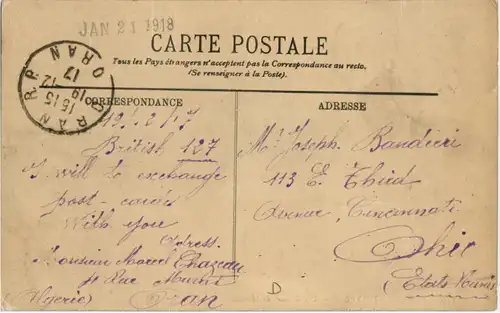 JAN 21 1918
CARTE POSTALE
Tous les Pays étrangers n'acceptent pas la Correspondance au recto.
(Se renseigner à la Poste).
ORAN R.P.
15 15
19 -12
17
ORAN
CORRESPONDANCE
ADRESSE
British 127
I will to exchange
post-cards
With you
Adress.
Monsieur Marcel Chazeau
Rue
Oran
(Algérie)
Mr Joseph Bandieri
113 E. Third
Avenue, Cincinnati
Ohio
(États-Unis)
D